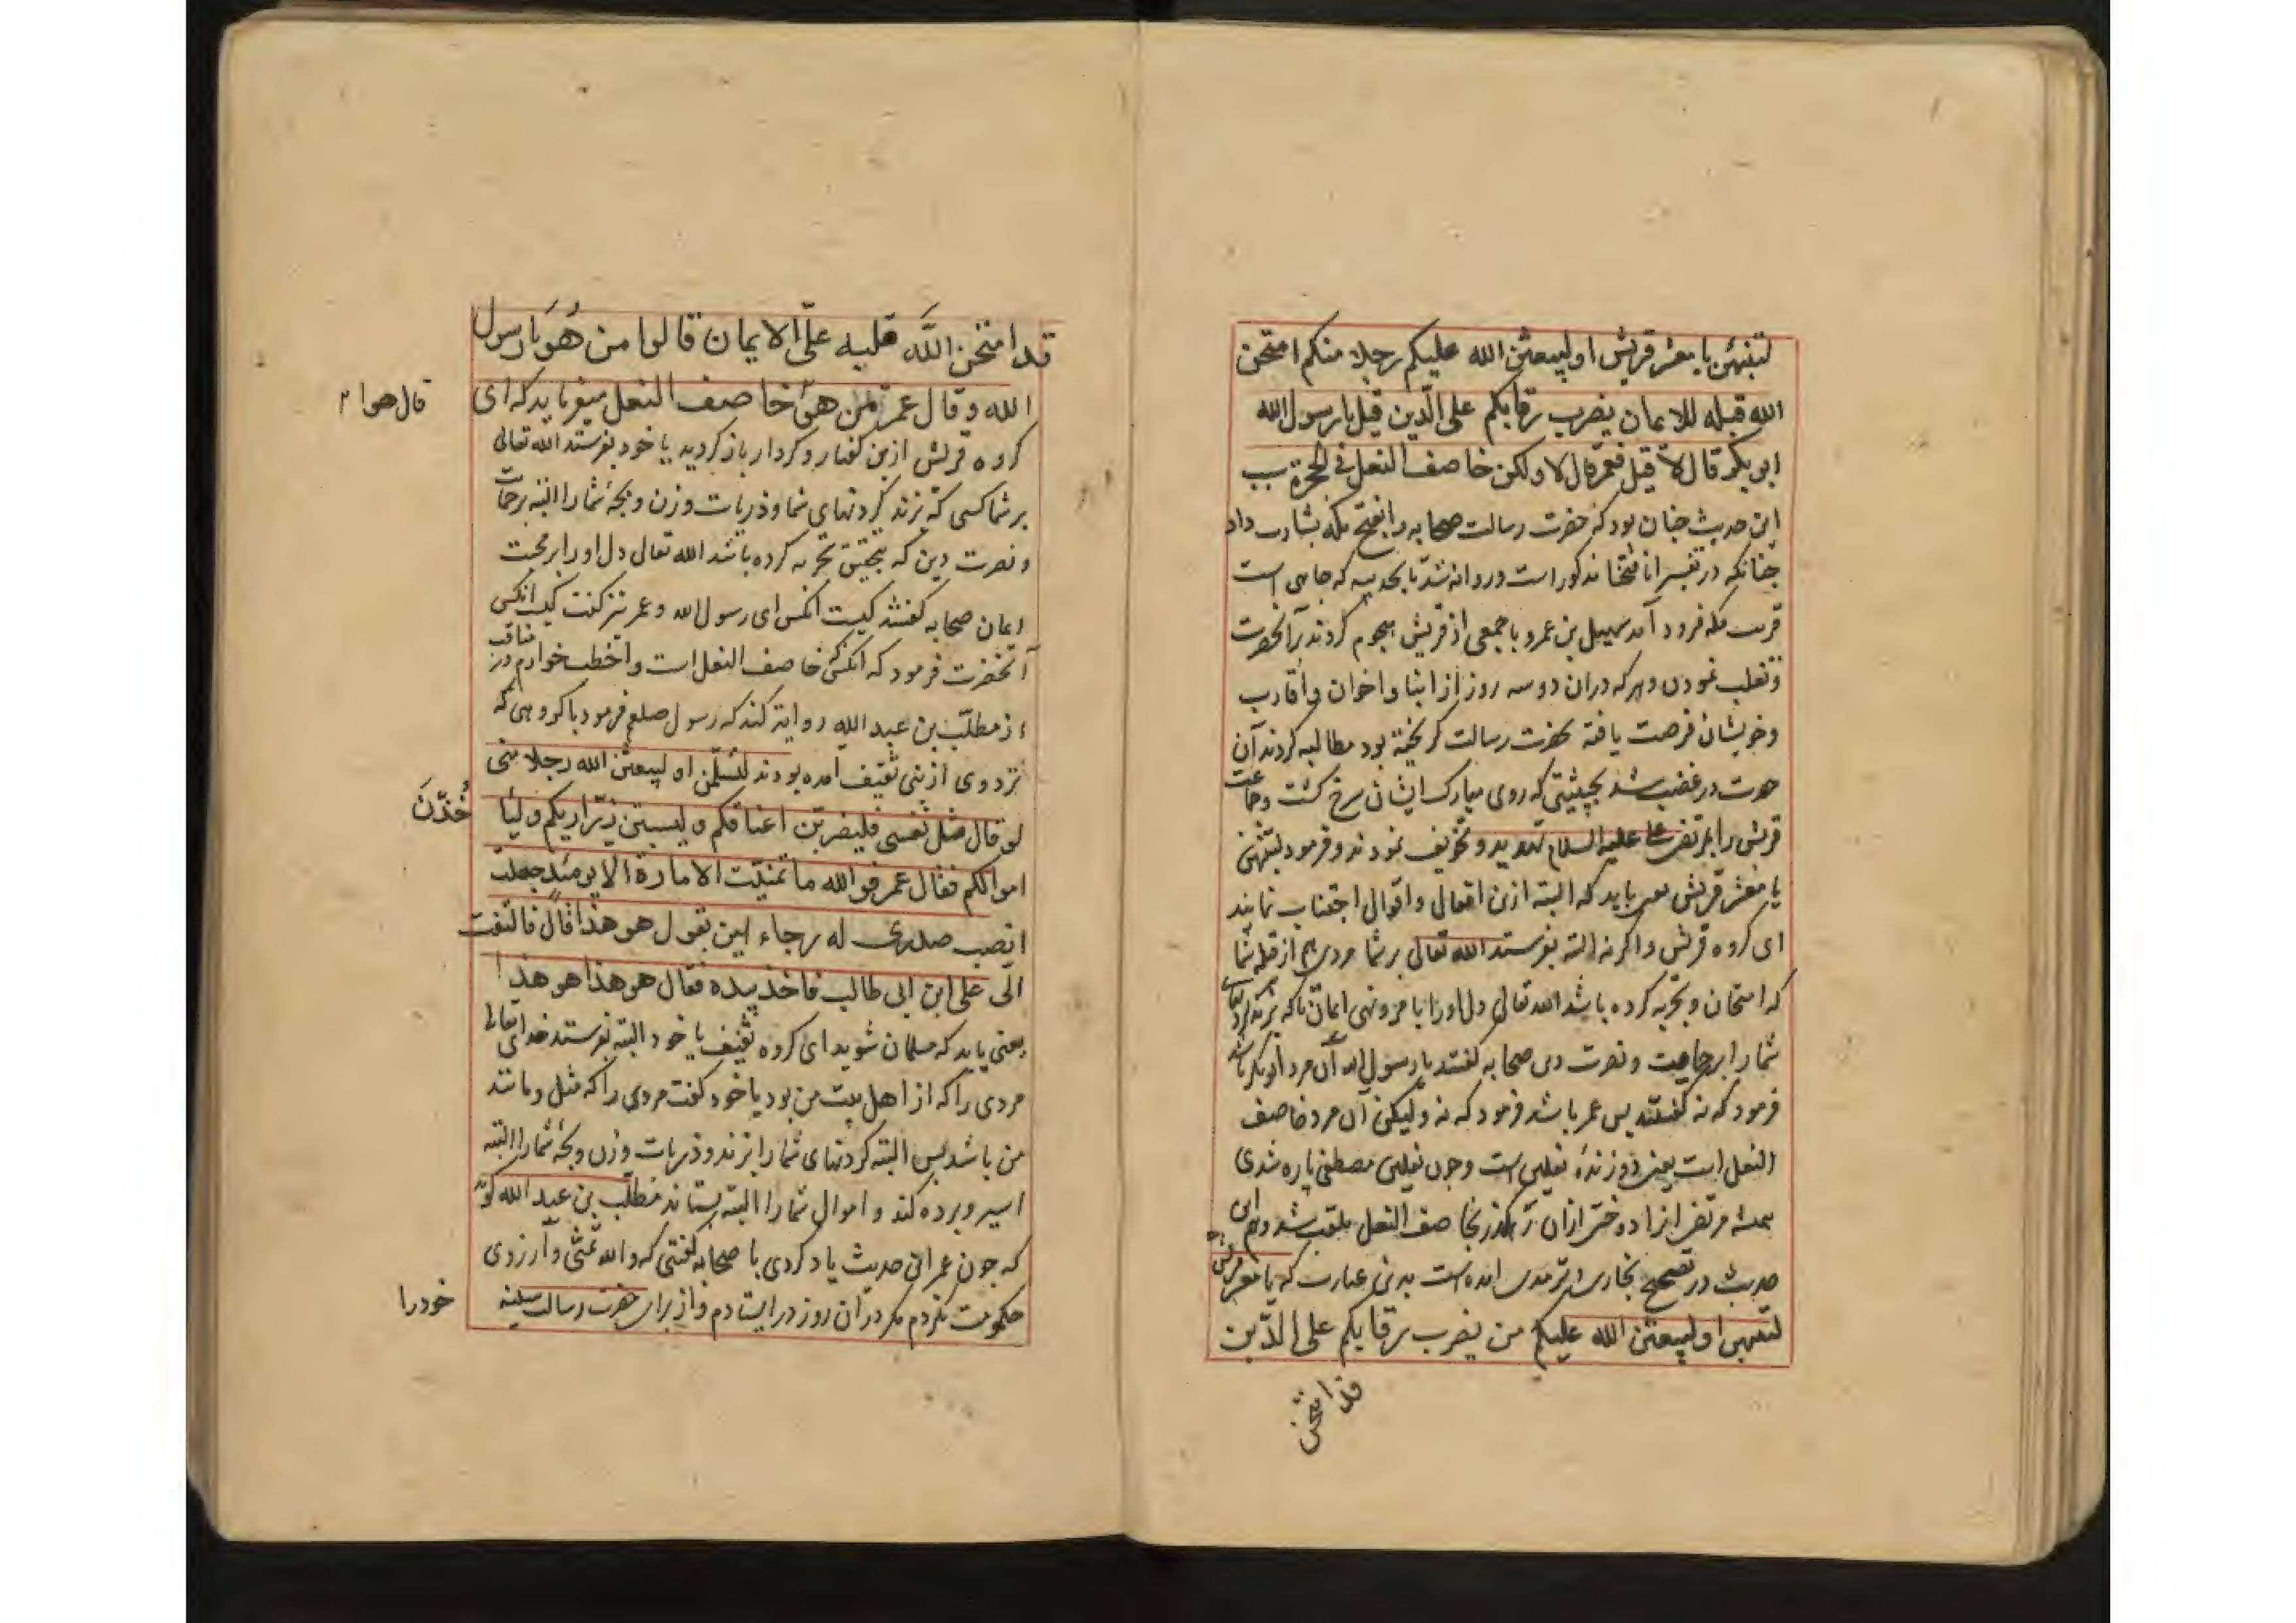 لتنتهن یا معشر قریش او لیبعثن الله علیکم رجلا منکم امتحن
الله قبله للایمان یضرب رقابکم علی الدین قیل یا رسول الله
ابو بکر قال لا قیل فعمر قال لا ولکن خاصف النعل فی الحجرة
این حدیث چنان بود که حضرت رسالت صحابه را بفتح مکه بشارت داد
چنانکه در تفسیر انا فتحنا مذکور است و روانه شد تا بحدیبیه که جاهی است
قرب مکه فرود آمد سهیل بن عمرو با جمعی از قریش هجوم کردند برآنحضرت
و تغلب نمودن و هر که دران دو سه روز از ابنا و اخوان و اقارب
و خویشان فرصت یافته بحضرت رسالت کریخته بود مطالبه کردند آن
حضرت در غضب شد بحیثیتی که روی مبارک ایشان سرخ کشت و جماعت
قریش را بمرتضی علی علیه السلام تهدید و تخویف نمودند و فرمود لتنتهن
یا معشر قریش یعنی باید که البته ازین افعال و اقوال اجتناب نمایند
ای کروه قریش و اکر نه البته بفرستد الله تعالی بر شما مردی هم از قبله شما
که امتحان و تجربه کرده باشد الله تعالی دل اورا بافزونی ایمان تا که بزند کردنهای
شما را برحامیت و نصرت دین صحابه کفتند یا رسول الله آن مرد ابو بکر باشد
فرمود که نه کفتند پس عمر باشد فرمود که نه ولیکن آن مرد خاصف
النعل است یعنی دوزندۀ نعلین است و چون نعلین مصطفی پاره شدی
همیشه مرتضی انرا دوختی ازان رهکذر بخاصف النعل ملقب شد و هم این
حدیث در صحیح بخاری و ترمذی امده است بدین عبارت که یا معشر قریش
لتنتهن او لیبعثن الله علیکم من یضرب رقابکم علی الدین
قد امتحن
قد امتحن الله قلبه علی الایمان قالوا من هو یا رسول
الله و قال عمر من هو خاصف النعل میفرماید که ای
قال هو
کروه قریش ازین کفتار و کردار باز کردید یا خود بفرستد الله تعالی
بر شما کسی که بزند کردنهای شما و ذریات و زن و بچۀ شمارا البته برحمایت
و نصرت دین که بتحقیق تجربه کرده باشد الله تعالی دل اورا بر محبت
ایمان صحابه کفتند کیست انکس ای رسول الله و عمر نیز کفت کیست انکس
آنحضرت فرمود که انکس که خاصف النعل است و اخطب خوارزم در مناقب
از مطلب بن عبد الله روایة کند که رسول صلعم فرمود با کروهی که
نزد وی از بنی ثقیف امده بودند لتسلمن او لیبعثن الله رجلا منی
او قال مثل نفسی فلیضربن اعناقکم و لیسبین ذراریکم و لیا
خذن
اموالکم فقال عمر فو الله ما تمنیت الامارة الا یومئذ جعلت
انصب صدری له رجاء این یقول هو هذا قال فالتفت
الی علی ابن ابی طالب فاخذ بیده فقال هو هذا هو هذا
یعنی باید که مسلمان شوید ای کروه ثقیف یا خود البته بفرستد خدای تعالی
مردی را که از اهل بیت من بود یا خود کفت مردی را که مثل و مانند
من باشد پس البته کردنهای شما را بزند و ذریات و زن و بچۀ شمارا البته
اسیر و برده کند و اموال شما را البته بستاند مطلب بن عبد الله کوید
که چون عمر این حدیث یاد کردی با صحابه کفتی که والله تمنی و آرزوی
حکومت نکردم مکر در آن روز در ایستادم و از برای حضرت رسالت سینه
خودرا